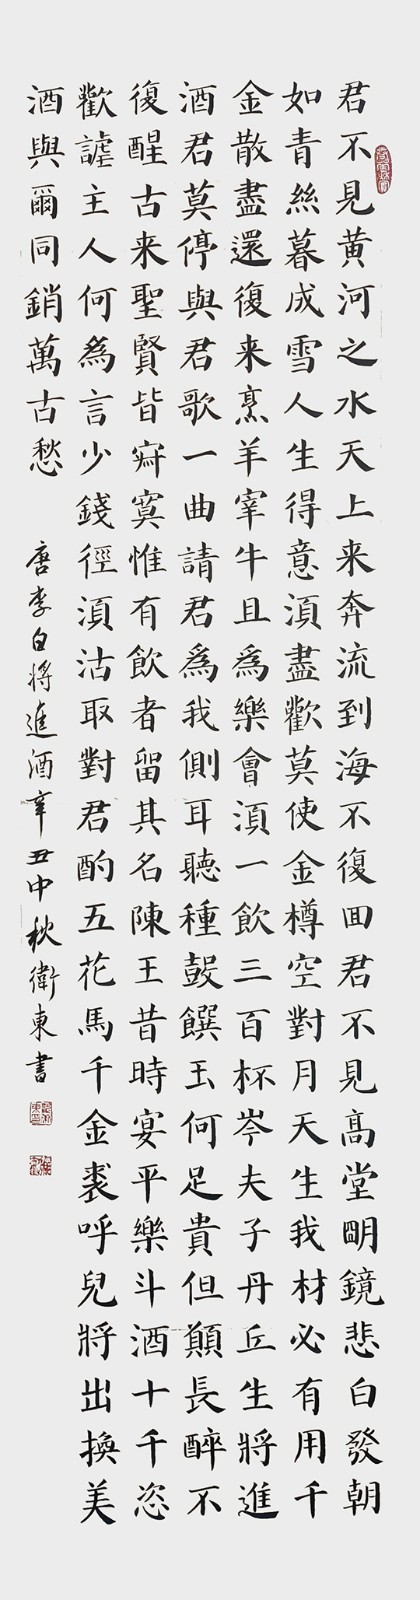 君不見黄河之水天上来奔流到海不復囬君不見髙堂眀鏡悲白發朝
如青絲暮成雪人生得意湏盡歡莫使金樽空對月天生我材必有用千
金散盡還復来烹羊宰牛且爲樂會湏一飲三百杯岑夫子丹丘生將進
酒君莫停與君歌一曲請君爲我側耳聽種鼓饌玉何足貴但顛長醉不
復醒古来聖賢皆寂寞惟有飲者留其名陳王昔時宴平樂斗酒十千恣
歡謔主人何爲言少錢徑湏沽取對君酌五花馬千金裘呼兒將出換美
酒與爾同銷萬古愁
唐李白將進酒辛丑中秋衛東書